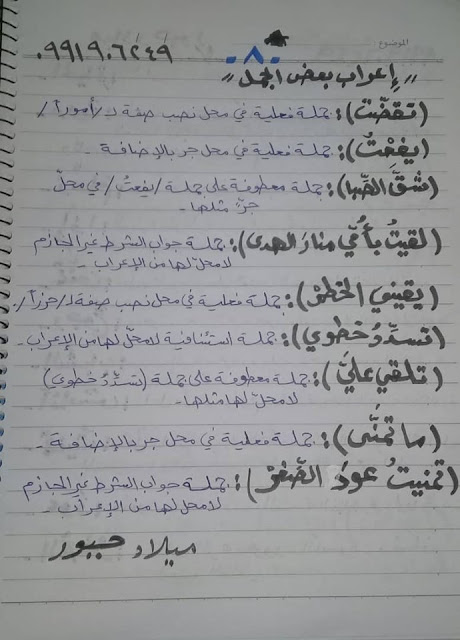 الموضوع
٠٩٩١٩٠٦٢٤٩
-٨٠-
"إعراب بعض الجمل"
(تقضّت): جملة فعلية في محل نصب صفة لـ /أموراً/
(يفعتُ): جملة فعلية في محل جر بالإضافة -
(شقَّ الصّبا): جملة معطوفة على جملة /يفعتُ/ في محلّ
جرّ مثلها -
(لقيتُ بأمّي منارَ الهدى): جملة جواب الشرط غير الجازم
لا محلّ لها من الإعراب -
(يقيني الخطر): جملة فعلية في محل نصب صفة لـ /حرزاً/.
(تسدّدُ خطوي): جملة استئنافية لا محلّ لها من الإعراب -
(تلقي عليّ): جملة معطوفة على جملة (تسدّدُ خطوي)
لا محلّ لها مثلها -
(ما تمنّى): جملة فعلية في محل جر بالإضافة -
(تمنيتُ عودَ الصّغر): جملة جواب الشرط غير الجازم
لا محل لها من الإعراب -
ميلاد جبور